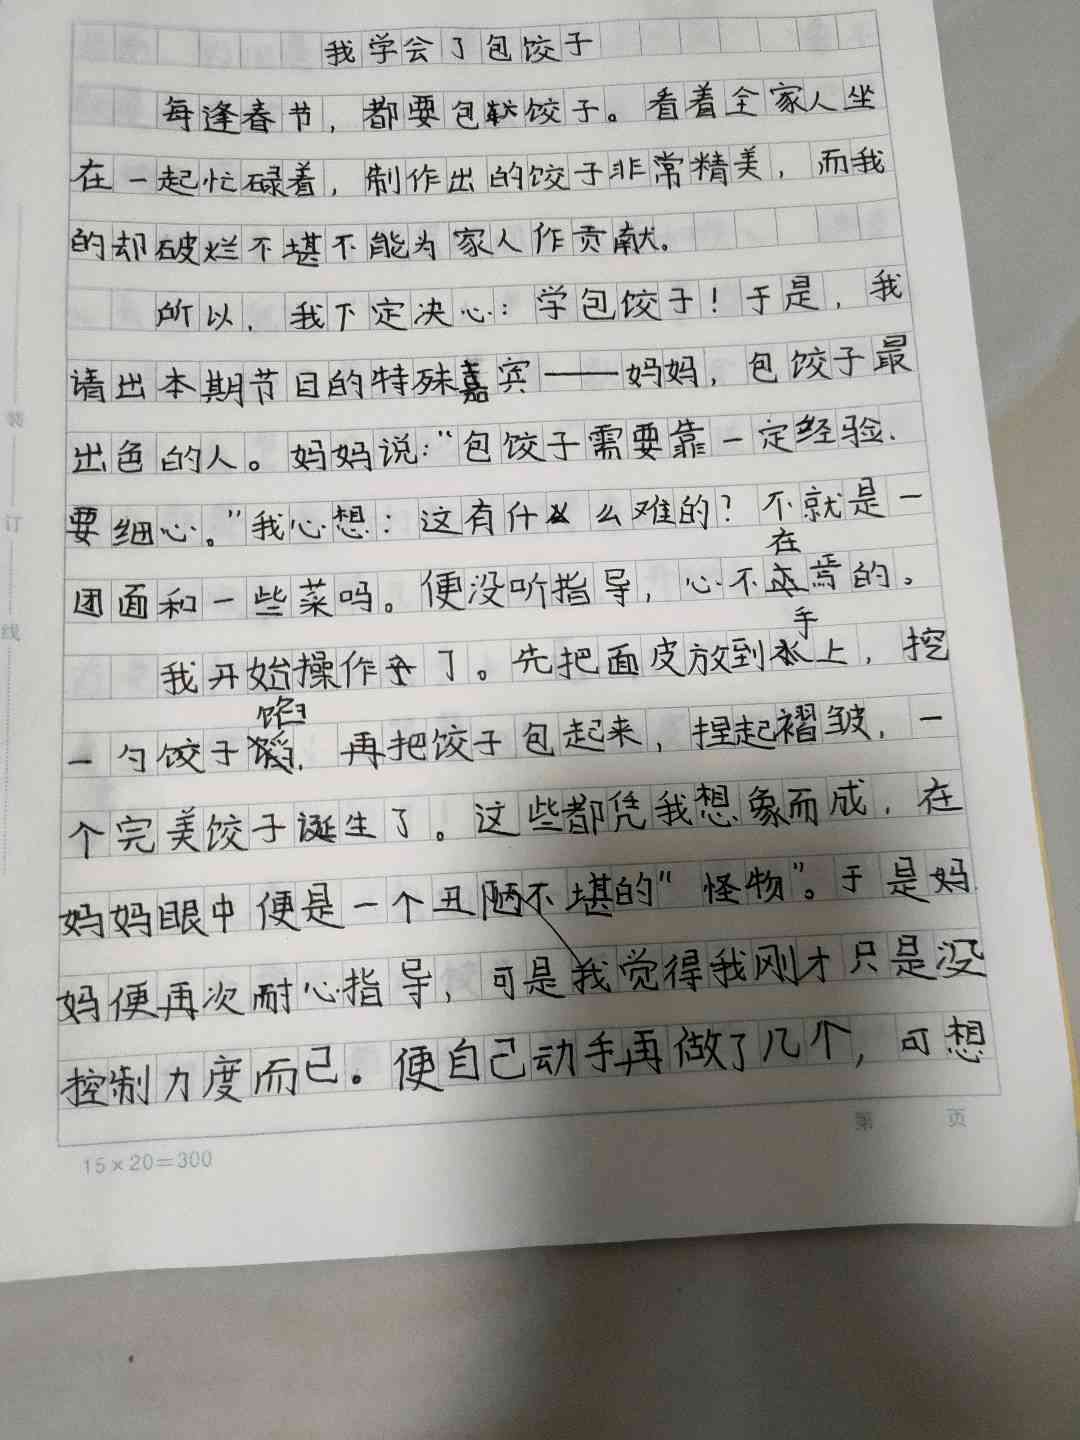 我学会了包饺子
每逢春节，都要包饺子。看着全家人坐
在一起忙碌着，制作出的饺子非常精美，而我
的却破烂不堪不能为家人作贡献。
所以，我下定决心：学包饺子！于是，我
请出本期节目的特殊嘉宾——妈妈，包饺子最
出色的人。妈妈说：“包饺子需要靠一定经验.
要细心。”我心想：这有什么难的？不就是一
团面和一些菜吗。便没听指导，心不在焉的。
我开始操作了。先把面皮放到手上，挖
一勺饺子馅，再把饺子包起来，捏起褶皱，一
个完美饺子诞生了。这些都凭我想象而成，在
妈妈眼中便是一个丑陋不堪的“怪物”。于是妈
妈便再次耐心指导，可是我觉得我刚才只是没
控制力度而已。便自己动手再做了几个，可想
装
订
线
第 页
15×20=300